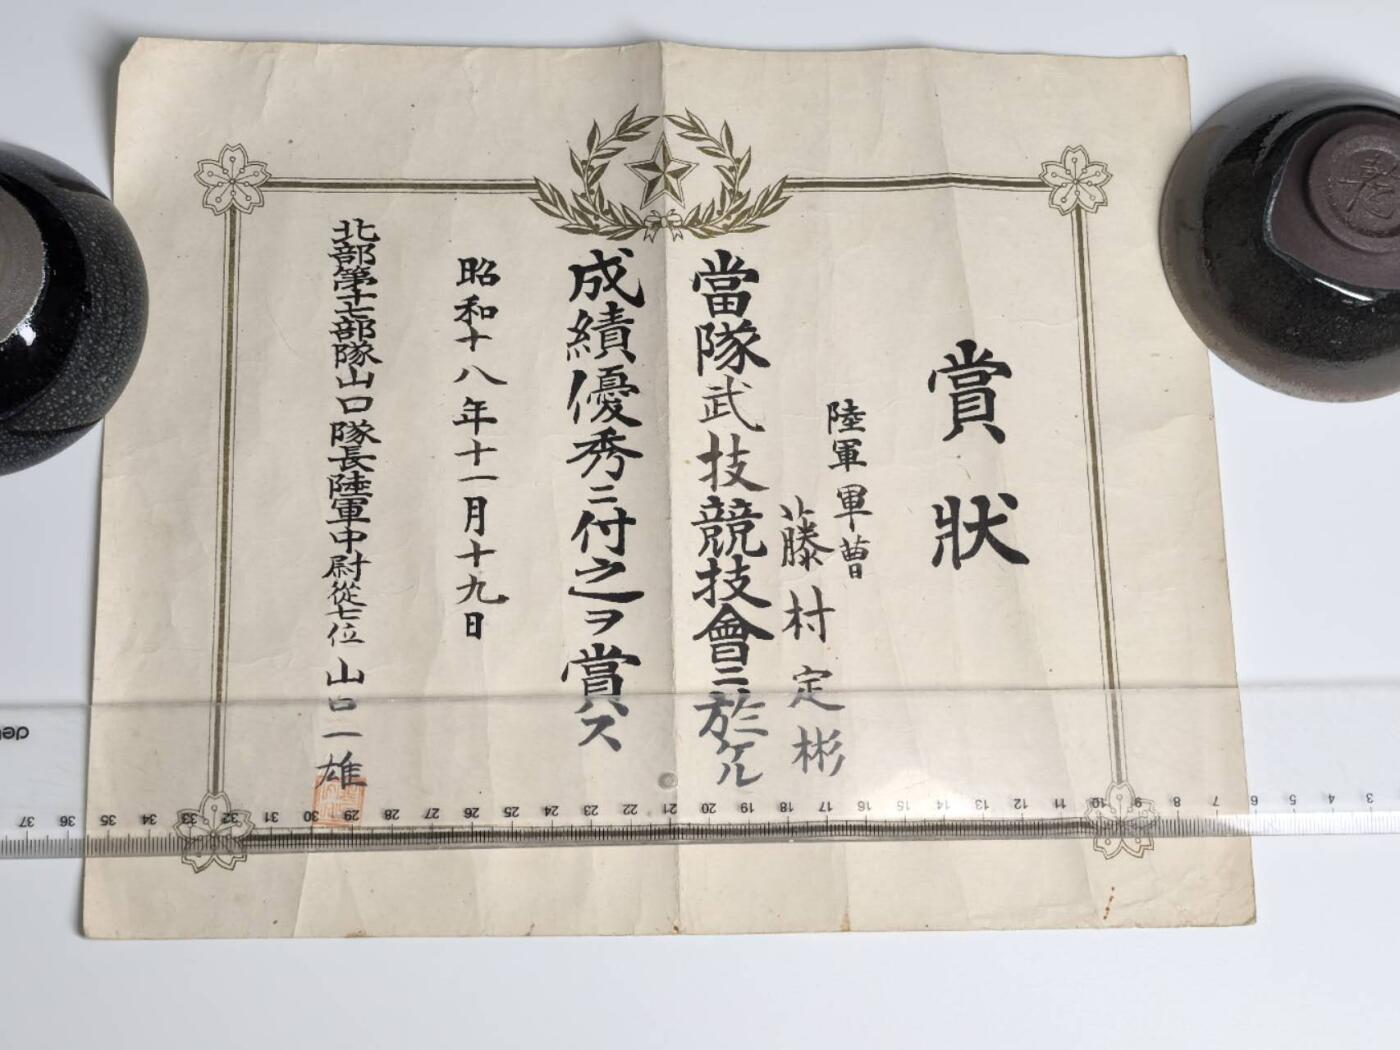 賞狀
陸軍軍曹
藤村定彬
當隊武技競技會ニ於ケル
成績優秀ニ付之ヲ賞ス
昭和十八年十一月十九日
北部第十七部隊山口隊長陸軍中尉從七位山口一雄
37 36 35 34 33 32 31 30 29 28 27 26 25 24 23 22 21 20 19 18 17 16 15 14 13 12 11 10 9 8 7 6 5 4 3